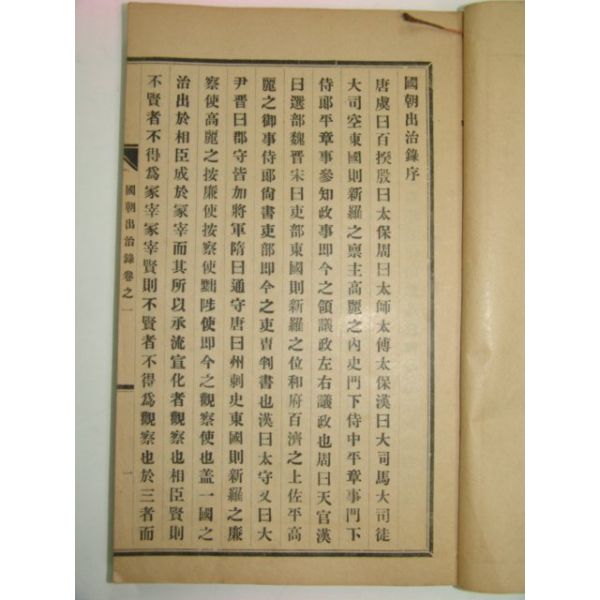 國朝出治錄序
唐虞曰百揆殷曰太保周曰太師太傅太保漢曰大司馬大司徒
大司空東國則新羅之稟主高麗之內史門下侍中平章事門下
侍郞平章事參知政事即今之領議政左右議政也周曰天官漢
曰選部魏晋宋曰吏部東國則新羅之位和府百濟之上佐平高
麗之御事侍郞尙書吏部即今之吏曹判書也漢曰太守又曰大
尹晋曰郡守皆加將軍隋曰通守唐曰州刺史東國則新羅之廉
察使高麗之按廉使按察使黜陟使即今之觀察使也盖一國之
治出於相臣成於冢宰而其所以承流宣化者觀察也相臣賢則
不賢者不得爲冢宰冢宰賢則不賢者不得爲觀察也於三者而
國朝出治錄卷之一
一